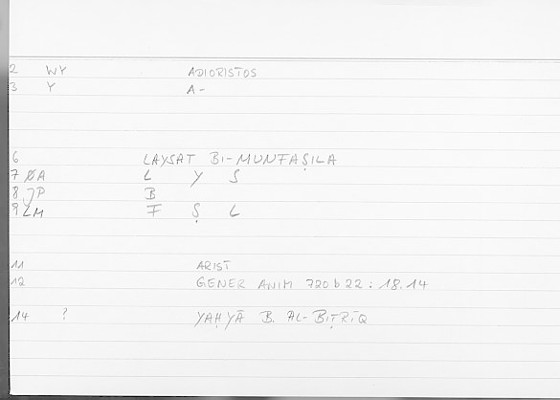 2 WY ADIORISTOS
3 Y A-
6 LAYSAT BI-MUNFAṢILA
7 ØA L Y S
8 JP B
9 LM F Ṣ L
11 ARIST
12 GENER ANIM 720b22 : 18.14
14 ? YAḤYĀ B. AL-BIṬRĪQ